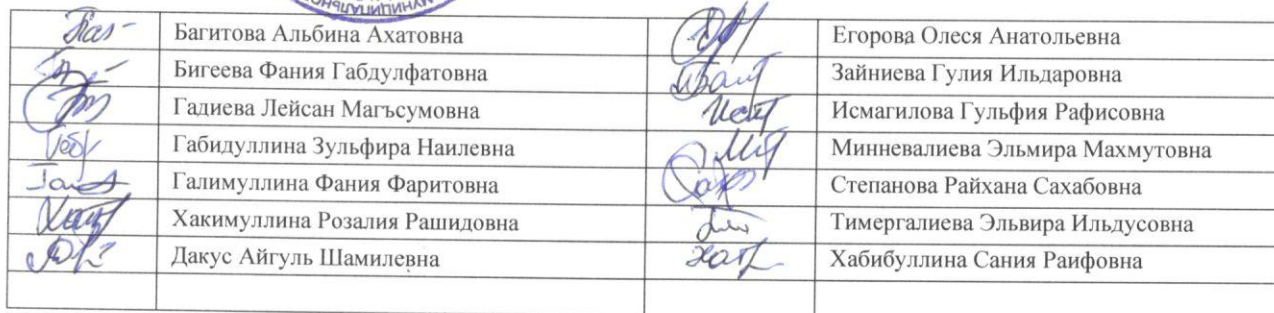 МУНИЦИПАЛЬНО
Багитова Альбина Ахатовна
Егорова Олеся Анатольевна
Бигеева Фания Габдулфатовна
Зайниева Гулия Ильдаровна
Гадиева Лейсан Магъсумовна
Исмагилова Гульфия Рафисовна
Габидуллина Зульфира Наилевна
Минневалиева Эльмира Махмутовна
Галимуллина Фания Фаритовна
Степанова Райхана Сахабовна
Хакимуллина Розалия Рашидовна
Тимергалиева Эльвира Ильдусовна
Дакус Айгуль Шамилевна
Хабибуллина Сания Раифовна